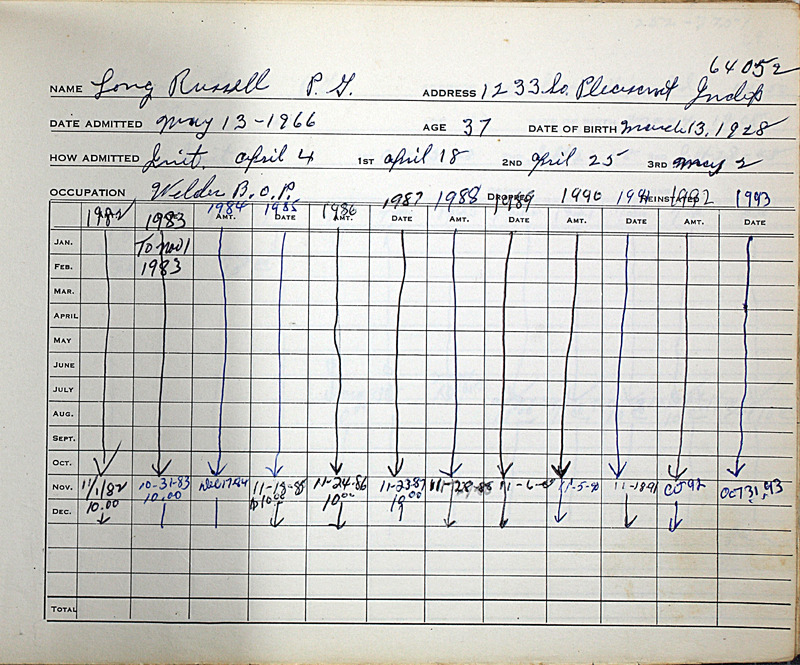 64052
NAME Long Russell P. G. ADDRESS 1233 So. Pleasant Indep
DATE ADMITTED May 13-1966 AGE 37 DATE OF BIRTH March 13, 1928
HOW ADMITTED Init. April 4 1ST April 18 2ND April 25 3RD May 2
OCCUPATION Welder B.O.P. DROPPED REINSTATED
1982 1983 1984 1985 1986 1987 1988 1989 1990 1991 1992 1993
AMT. DATE AMT. DATE AMT. DATE AMT. DATE AMT. DATE
JAN. To Nov 1
FEB. 1983
MAR.
APRIL
MAY
JUNE
JULY
AUG.
SEPT.
OCT.
NOV. 11/1/82 10-31-83 11-18-85 11-24-86 11-23-87 11-18-91 Oct 92 OCT 31, 93
10.00 10.00 $10.00 10.00 10.00
DEC.
TOTAL